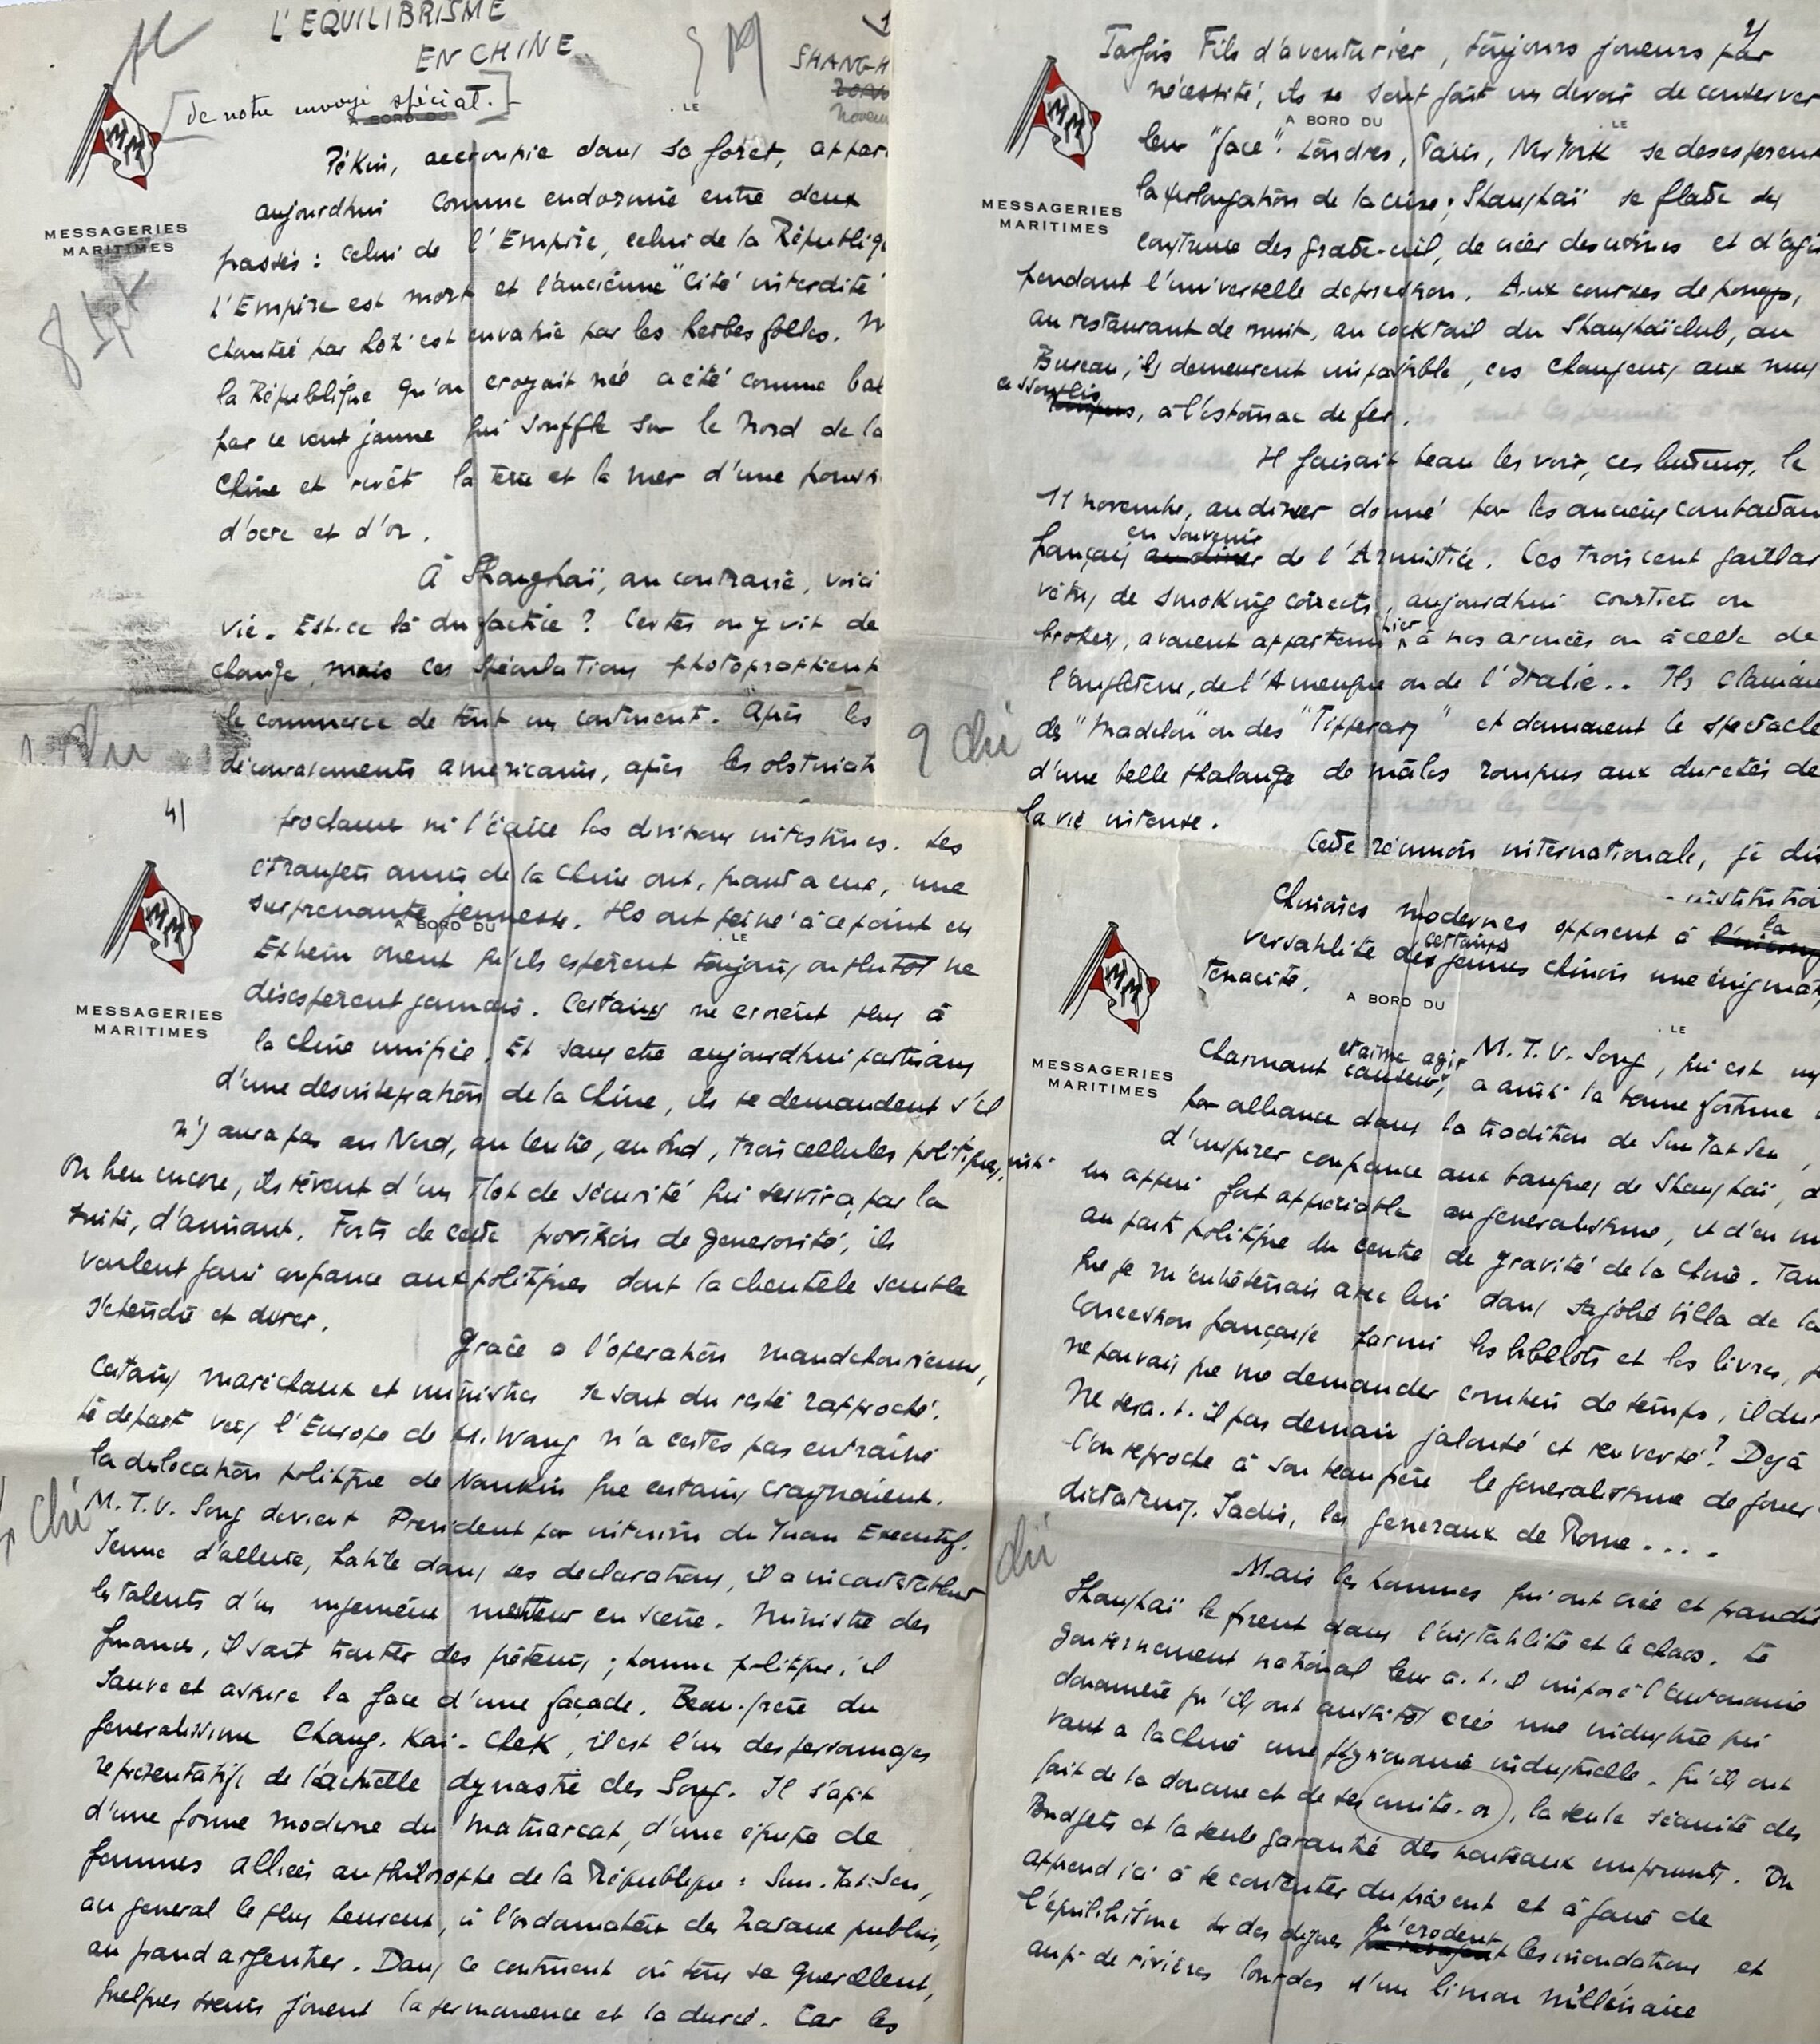 L'EQUILIBRISME
EN CHINE
SHANGH
[de notre envoyé spécial.]
A BORD DU
LE
MM
MESSAGERIES
MARITIMES
Pékin, accroupie dans sa forêt, appar
aujourdhui comme endormie entre deux
passés : celui de l'Empire, celui de la Républiq
L'Empire est mort et l'ancienne "Cité interdite"
chantée par Loti est envahie par les herbes folles.
la République qu'on croyait née a été comme bal
par ce vent jaune qui souffle sur le Nord de la
Chine et revêt la terre et la mer d'une pouss
d'ocre et d'or.
À Shanghaï, au contraire, voici
vie. Est-ce là du factice ? Certes on y vit de
change, mais ces spéculations photographient
le commerce de tout un continent. Après les
découragements américains, après les obstinat
2/
Parfois Fils d'aventurier, toujours joueurs par
nécessité, ils se sont fait un devoir de conserver
A BORD DU
LE
leur "face". Londres, Paris, New York se désespèrent
MM
MESSAGERIES
MARITIMES
la prolongation de la crise ; Shanghaï se flatte de
construire des gratte-ciel, de créer des usines et d'agir
pendant l'universelle dépression. Aux courses de poneys,
au restaurant de nuit, au cocktail du Shanghaïclub, au
Bureau, ils demeurent impassible, ces changeurs aux
assouplis
, à l'estomac de fer.
Il faisait beau les voir, ces lutteurs, le
11 novembre, au diner donné par les anciens combattan
en souvenir
français au diner de l'Armistice. Ces trois cent gaillar
vêtus de smoking corrects, aujourdhui courtiers ou
brokers, avaient appartenu hier à nos armées ou à celle de
l'Angleterre, de l'Amerique ou de l'Italie.. Ils clamaie
des "Madelon" ou des "Tipperary" et donnaient le spectacle
d'une belle phalange de mâles rompus aux duretés de
la vie intense.
Cette réunion internationale, je dis
institution
4/
proclame ni l'égalité les divisions intestines. Les
étrangers amis de la Chine ont, quant a eux, une
surprenante jeunesse. Ils ont peiné à ce point en
A BORD DU
LE
MM
MESSAGERIES
MARITIMES
Extrem orient qu'ils espèrent toujours ou plutot ne
désespèrent jamais. Certains ne croient plus à
la Chine unifiée. Et sans etre aujourdhui partisans
d'une désintégration de la Chine, ils se demandent s'il
n'y aura pas au Nord, au Centre, au Sud, trois cellules politiques,
ou bien encore, ils rêvent d'un îlot de sécurité qui servira, par la
suite, d'aimant. Forts de cette provision de generosité, ils
veulent faire confiance aux politiques dont la clientèle semble
s'étendre et durer.
Grâce a l'opération mandchourienne,
Certains maréchaux et ministres se sont du reste rapproché.
Le départ vers l'Europe de M. Wang n'a certes pas entraîné
la dislocation politique de Nankin que certains craignaient.
M. T. V. Song devient President par interim du Yuan Executif.
Jeune d'allure, habile dans ses declarations, il a incontestablemt
les talents d'un ingénieux metteur en scène. Ministre des
finances, il sait traiter des prêteurs ; homme politique, il
sauve et assure la face d'une façade. Beau-frère du
généralissime Chang-Kai-Chek, il est l'un des personnages
représentatifs de l'actuelle dynastie des Song. Il s'agit
d'une forme moderne du matriarcat, d'une équipe de
femmes alliées au philosophe de la République : Sun-Yat-Sen,
au general le plus heureux, à l'ordonnateur des travaux publics,
au grand argentier. Dans ce continent où tous se querellent,
quelques sœurs jouent la permanence et la durée. Car les
Chinoises modernes opposent à la
versatilité de certains jeunes chinois une énigmat
tenacité.
A BORD DU
LE
MM
MESSAGERIES
MARITIMES
et aime agir
Charmant causeur, M. T. V. Song, qui est
a ainsi la bonne fortune
par alliance dans la tradition de Sun Yat Sen,
d'inspirer confiance aux banques de Shanghaï, d
un appui fort appréciable au generalissime, et d'en
au point politique du centre de gravité de la Chine. Tan
que je m'entretenais avec lui dans sa jolie villa de la
Concession française parmi les bibelots et les livres, je
ne pouvais que me demander combien de temps, il dur
Ne sera-t-il pas demain jalousé et renversé ? Dejà
l'on reproche à son beau père le generalissime de jouer
dictateurs. Jadis, les generaux de Rome ....
Mais les hommes qui ont créé et grandi
Shanghaï le firent dans l'instabilité et le chaos. Le
gouvernement national leur a-t-il imposé l'autonomie
douanière qu'ils ont aussitot créé une industrie qui
vaut a la Chine une physionomie industrielle. Qu'ils ont
fait de la douane et de ses unité-or, la seule sécurité des
Budgets et la seule garantie des nouveaux emprunts. On
apprend ici à se contenter du présent et à faire de
l'équilibrisme sur des digues qu'erodent les inondations et
de rivières lourdes d'un limon millénaire